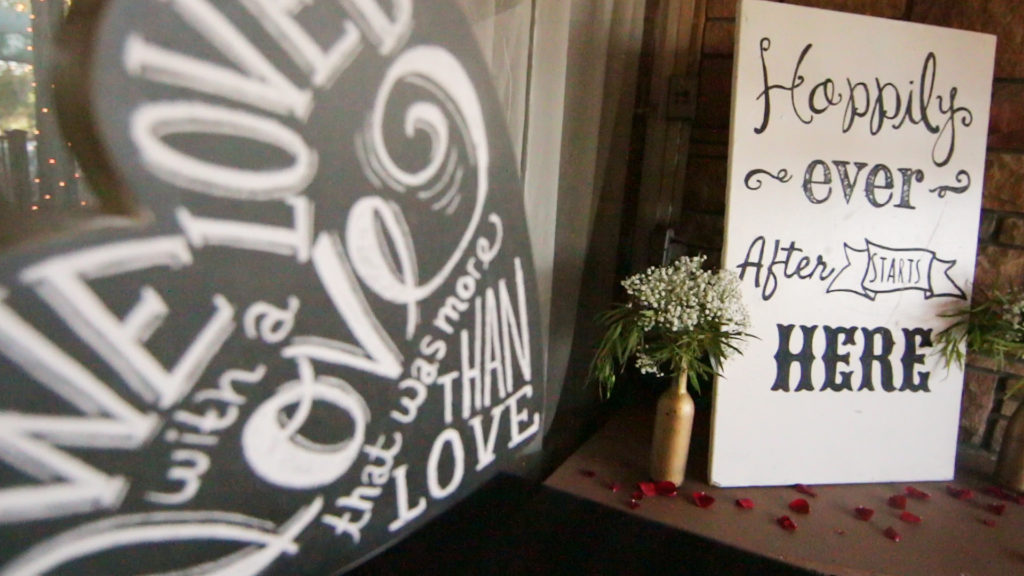 WE LOVED
with a
love
that was more
THAN
LOVE
Happily
ever
After STARTS
HERE